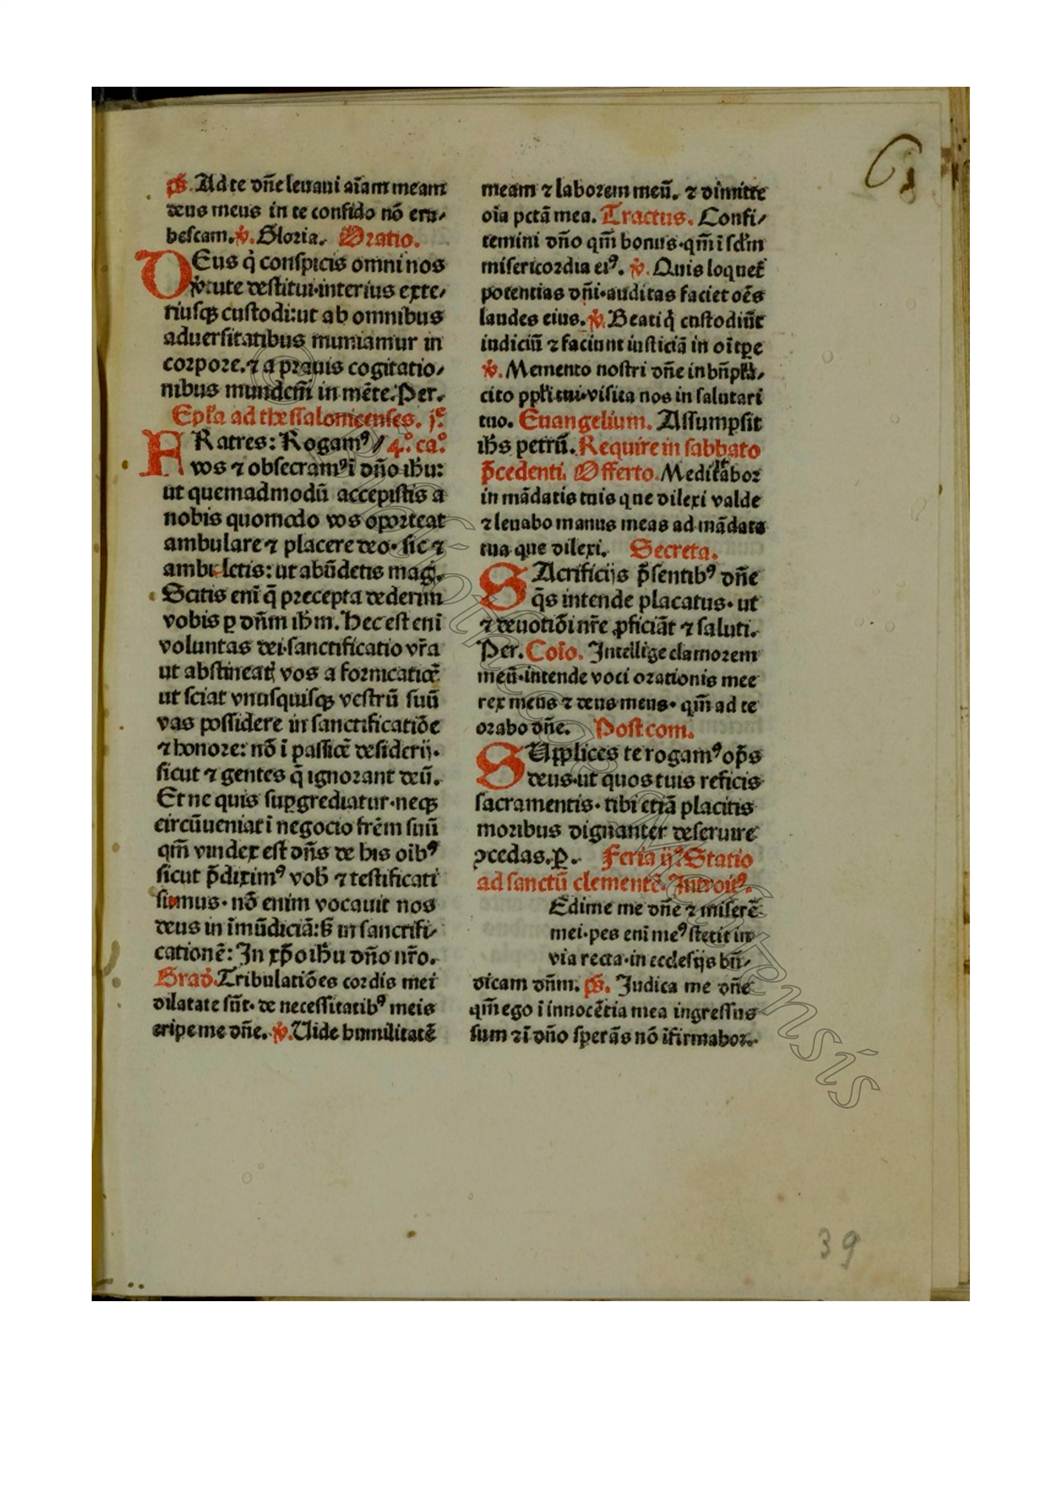 ps. Ad te dn̄e levavi aīam meam
deus meus in te confido nō eru/
bescam. v̄. Gloria. Oratio.
DEus q̄ conspicis omni nos
v̄tute destitui·interius exte/
riusqꝫ custodi:ut ab omnibus
adversitatibus muniamur in
corpore.⁊ a pravis cogitatio/
nibus mundem̄ in mēte.Per.
Ep̄ła ad thessalonicenses. jͤ.
FRatres: Rogamꝰ / 4.º ca.º
vos ⁊ obsecramꝰ ī dn̄o ih̄u:
ut quemadmodū accepistis a
nobis quomodo vos oporteat
ambulare ⁊ placere deo· sic ⁊
ambuletis: ut abūdetis magꝭ.
Scitis enī q̄ precepta dederim
vobis ꝑ dn̄m ih̄m. Hec est enī
voluntas dei·sanctificatio vr̄a
ut abstineatꝭ vos a fornicatiōe
ut sciat vnusquisqꝫ vestrū suū
vas possidere in sanctificatiōe
⁊ honore: nō ī passiōe desiderij·
sicut ⁊ gentes q̄ ignorant deū.
Et ne quis suꝑgrediatur·neqꝫ
circūveniat ī negocio frēm suū
qm̄ vindex est dn̄s de his oībꝰ
sicut p̄diximꝰ vob̄ ⁊ testificati
sumus· nō enim vocavit nos
deus in īmūdiciā:s̄ in sanctifi/
cationē: Jn xp̄o ih̄u dn̄o nr̄o.
Grad̄. Tribulatiōes cordis mei
dilatate sūt· de necessitatibꝰ meis
eripe me dn̄e. v̄. Uide humilitatē
meam ⁊ laborem meū. ⁊ dimitte
oīa pctā mea. Tractus. Confi/
temini dn̄o qm̄ bonus·qm̄ ī scl̄m
misericordia eiꝰ. v̄. Quis loquet᷑
potentias dn̄i·auditas faciet oēs
laudes eius. v̄. Beati q̄ custodiūt
iudiciū ⁊ faciunt iusticiā in oī tp̄e
v̄. Memento nostri dn̄e in bn̄pła/
cito ppłi tui·visita nos in salutari
tuo. Euangelium. Assumpsit
ih̄s petrū. Require in sabbato
p̄cedenti. Offerto. Meditabor
in mādatis tuis que dilexi valde
⁊ levabo manus meas ad mādata
tua que dilexi. Secreta.
SAcrificijs p̄sentibꝰ dn̄e
q̄s intende placatus· ut
⁊ devotiōi nr̄e ꝓficiāt ⁊ saluti.
Per. Coīo. Jntellige clamorem
meū·intende voci orationis mee
rex meus ⁊ deus meus· qm̄ ad te
orabo dn̄e. Post com.
SUpplices te rogamꝰ op̄s
deus·ut quos tuis reficis
sacramentis· tibi etiā placitis
moribus dignanter deservire
ꝯcedas. ꝑ. Feria ijª Statio
ad sanctū clementē. Introitꝰ.
Edime me dn̄e ⁊ miserē
mei·pes enī meꝰ stetit in
via recta·in ecclesijs bn̄/
dicam dn̄m. ps. Judica me dn̄e
qm̄ ego ī innocētia mea ingressus
sum ⁊ ī dn̄o sperās nō īfirmabor.
39